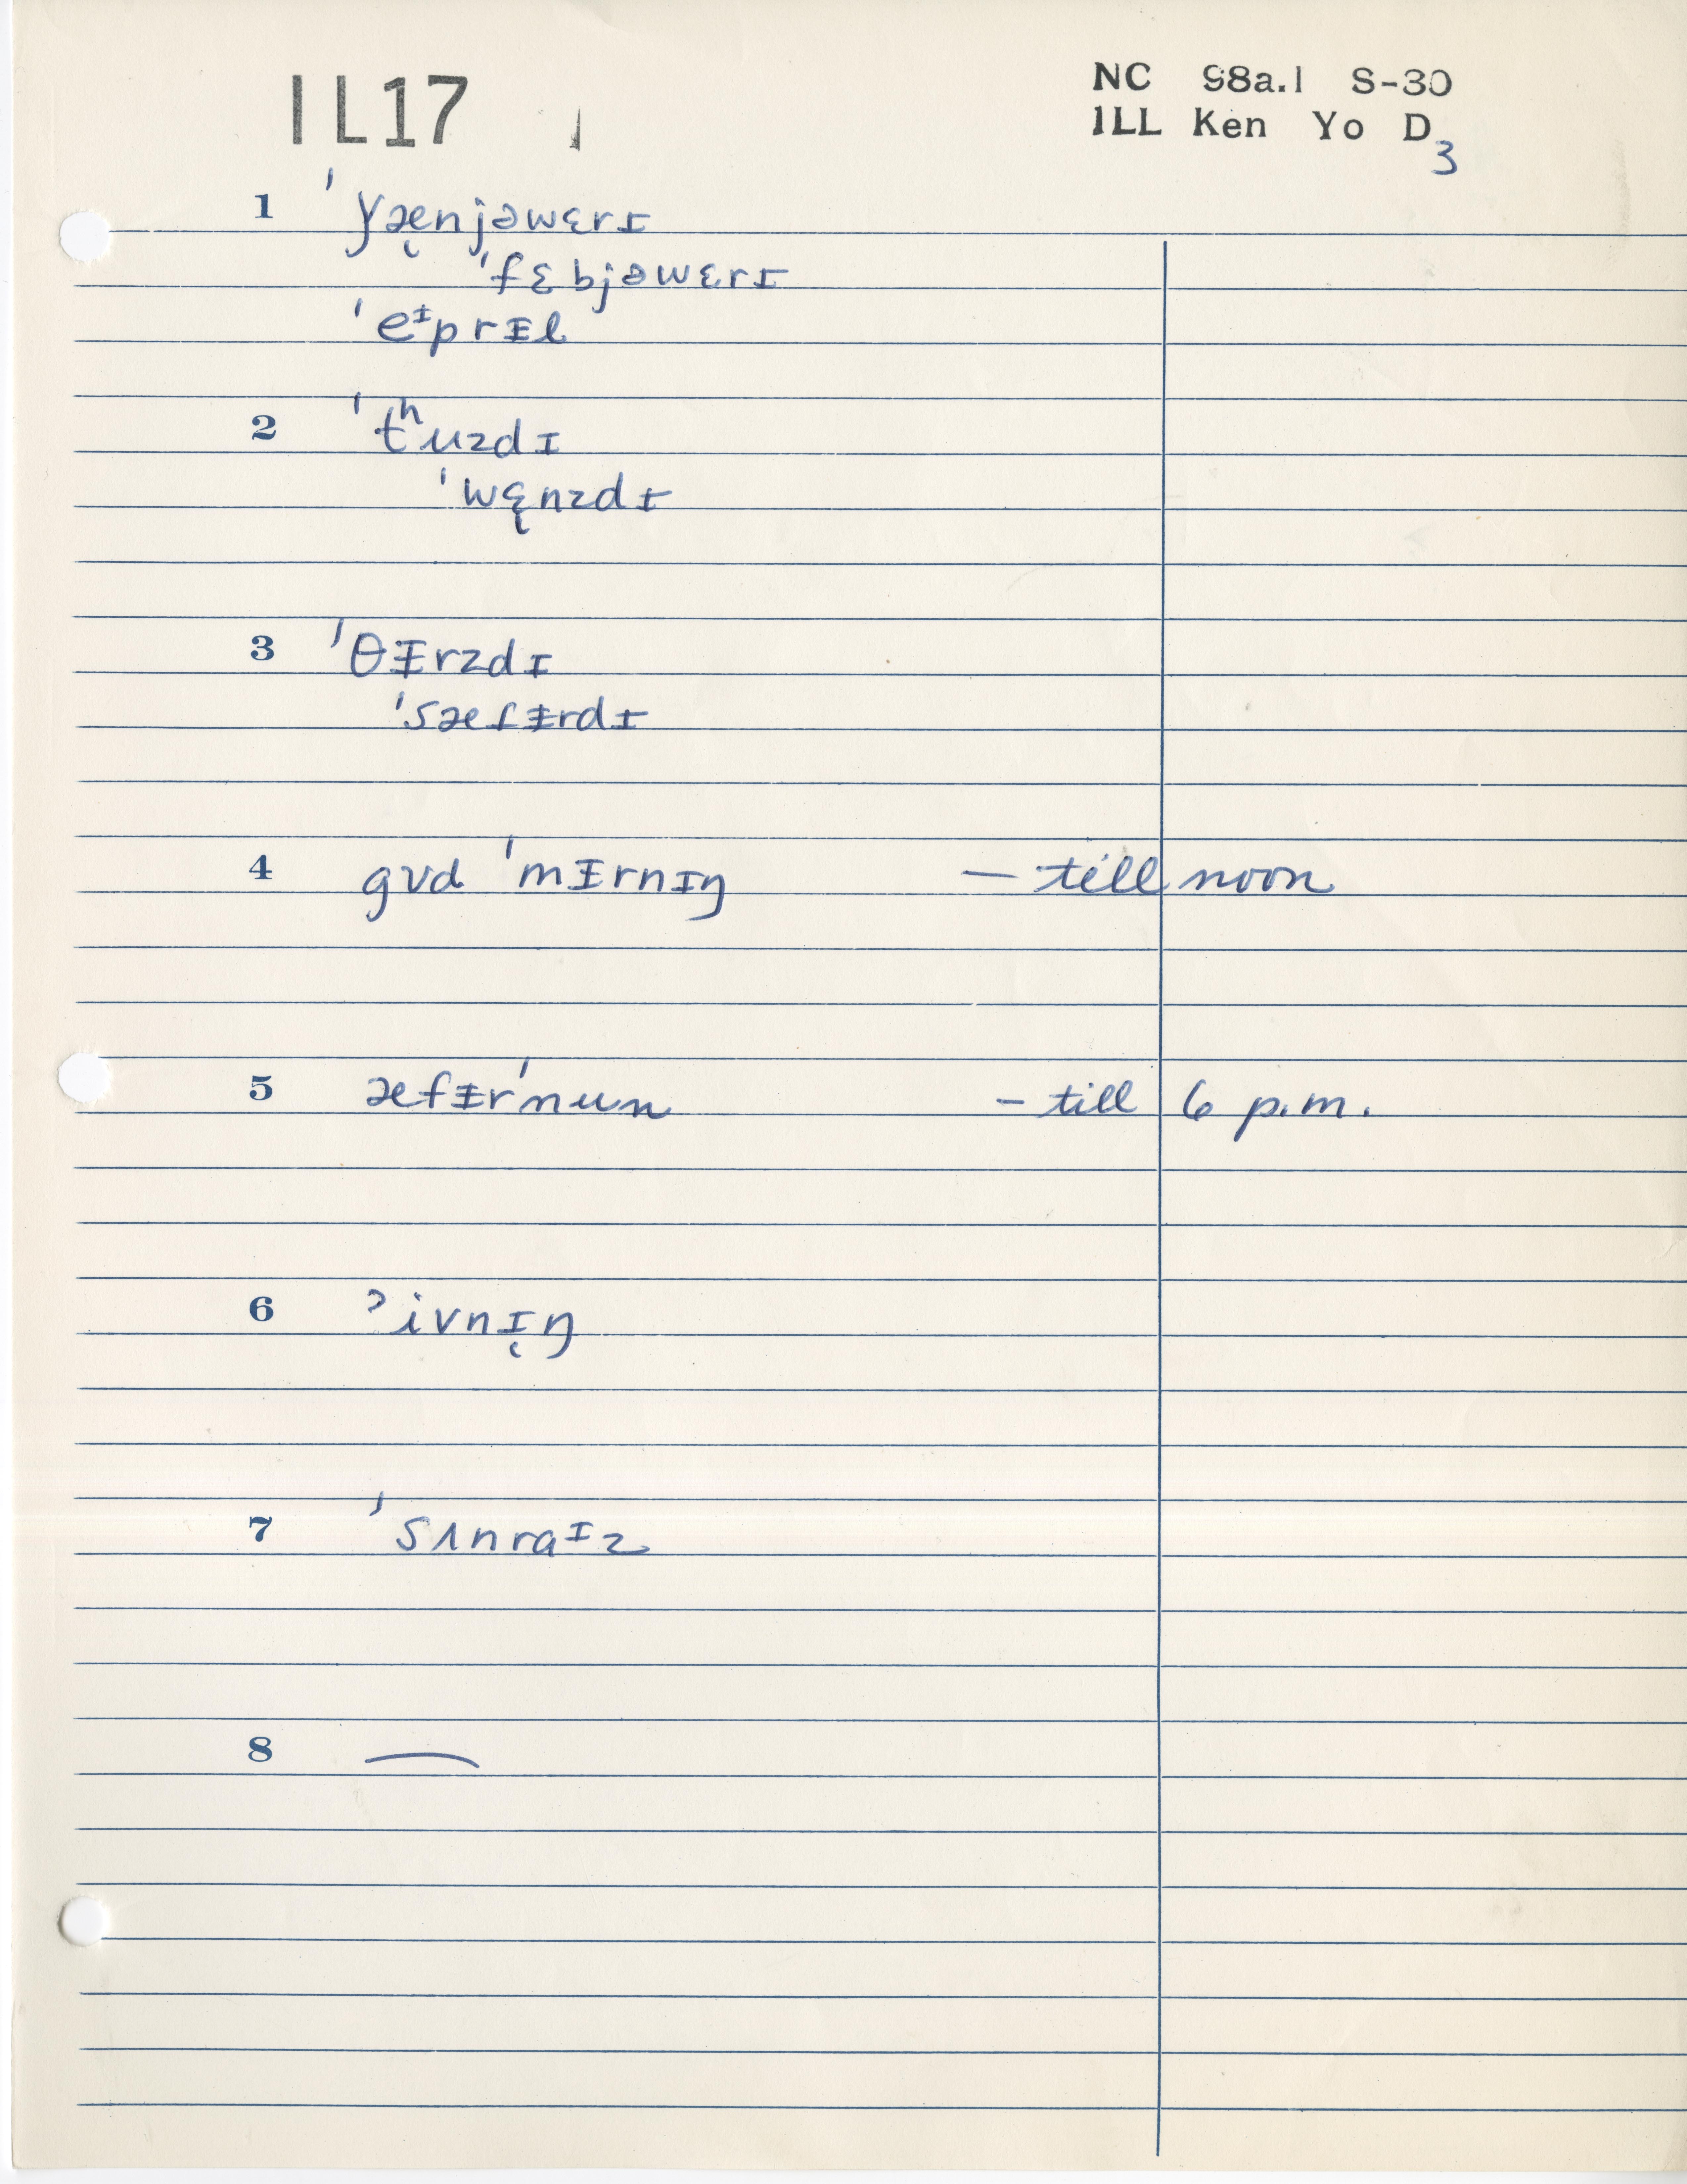 IL17 1
NC 98a.1 S-30
ILL Ken Yo D3
1 ˈɏæ̨njəwɛrɪ
ˈfɛbjəwɛrɪ
ˈeᶦprᵻl
2 ˈtʰuzdɪ
ˈwɛ̨nzdɪ
3 ˈθᵻrzdɪ
ˈsæfᵻrdɪ
4 gʊd ˈmᵻrnɪŋ — till noon
5 æfᵻrˈnun – till 6 p.m.
6 ˀivnɪ̨ŋ
7 ˈsʌnraᶦz
8 —